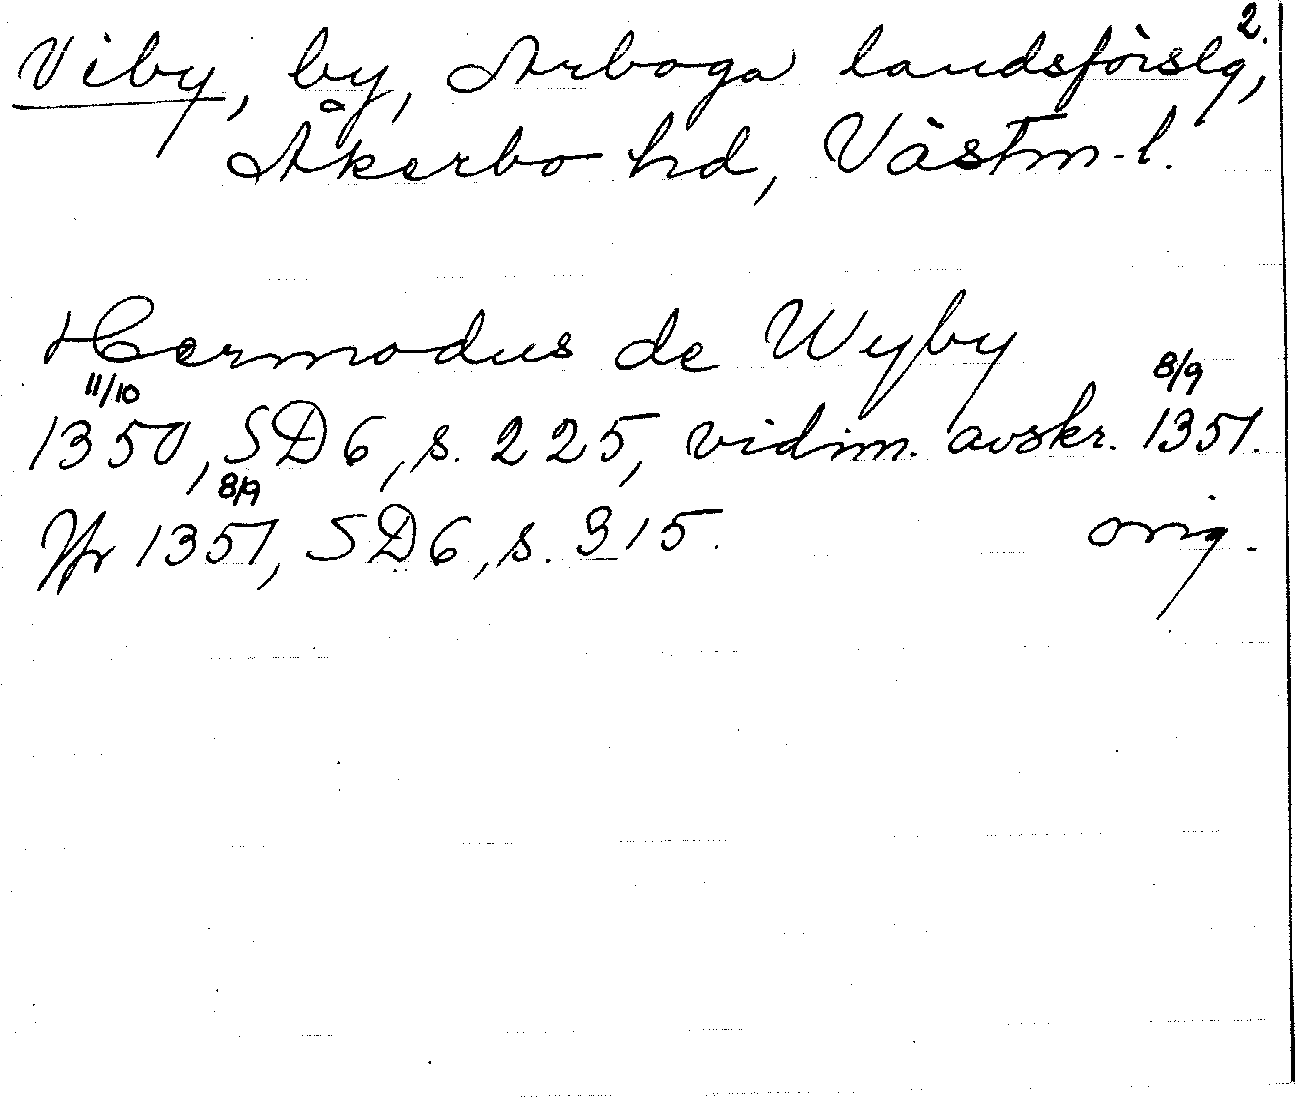 2.
Viby, by, Arboga landsförslg,
Åkerbo hd, Västm. l.
Hermodus de Wyby
11/10 8/9
1350, SD6, s. 225, vidim. avskr. 1351.
8/9
Jfr 1351, SD6, s. 315. orig.